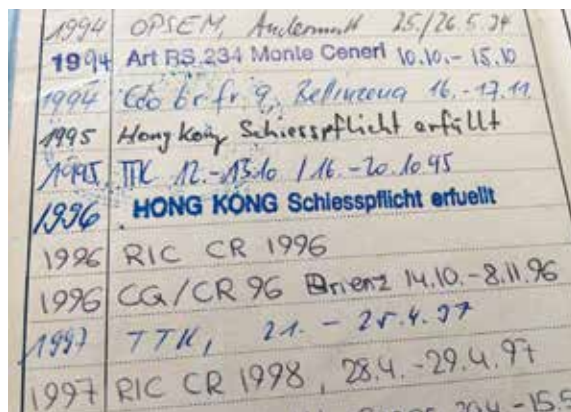 1994 OPSEM, Andermatt 25./26.5.94
1994 Art RS 234 Monte Ceneri 10.10.- 15.10
1994 Cdo br fr 9, Bellinzona 16.-17.11.
1995 Hong Kong Schiesspflicht erfüllt
1995 TTK 12.-13.10 / 16.-20.10.95
1996 HONG KONG Schiesspflicht erfuellt
1996 RIC CR 1996
1996 CG/CR 96 Brienz 14.10.-8.11.96
1997 TTK, 21. - 25.4.97
1997 RIC CR 1998, 28.4.-29.4.97
-15.5